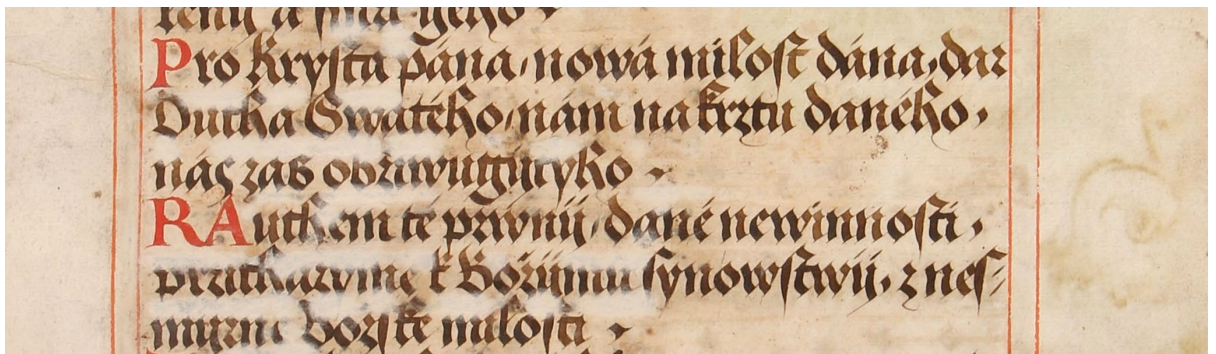 Pro Krysta pána, nowá milost dána, dar
Ducha Swatého, nám na krztu daného,
nás zas obžiwugijcyho
RAuchem té prwnij, dané newinnosti,
k Božijmu synowstwij, z nes-
mijrné Božské milosti